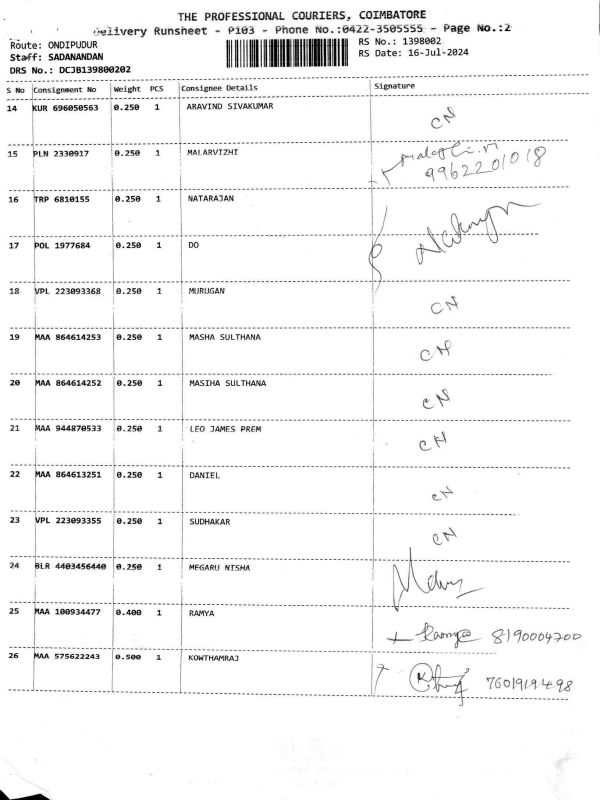 THE PROFESSIONAL COURIERS, COIMBATORE
Delivery Runsheet - P103 - Phone No.:0422-3505555 - Page No.:2
Route: ONDIPUDUR
RS No.: 1398002
Staff: SADANANDAN
RS Date: 16-Jul-2024
DRS No.: DCJB139800202
S No Consignment No Weight PCS Consignee Details Signature
14 KUR 696050563 0.250 1 ARAVIND SIVAKUMAR CN
15 PLN 2330917 0.250 1 MALARVIZHI
9962201018
16 TRP 6810155 0.250 1 NATARAJAN
17 POL 1977684 0.250 1 DO
18 VPL 223093368 0.250 1 MURUGAN CN
19 MAA 864614253 0.250 1 MASHA SULTHANA CN
20 MAA 864614252 0.250 1 MASIHA SULTHANA CN
21 MAA 944870533 0.250 1 LEO JAMES PREM CN
22 MAA 864613251 0.250 1 DANIEL CN
23 VPL 223093355 0.250 1 SUDHAKAR CN
24 BLR 4403456440 0.250 1 MEGARU NISHA
25 MAA 100934477 0.400 1 RAMYA Ramya 8190004700
26 MAA 575622243 0.500 1 KOWTHAMRAJ 7601919498